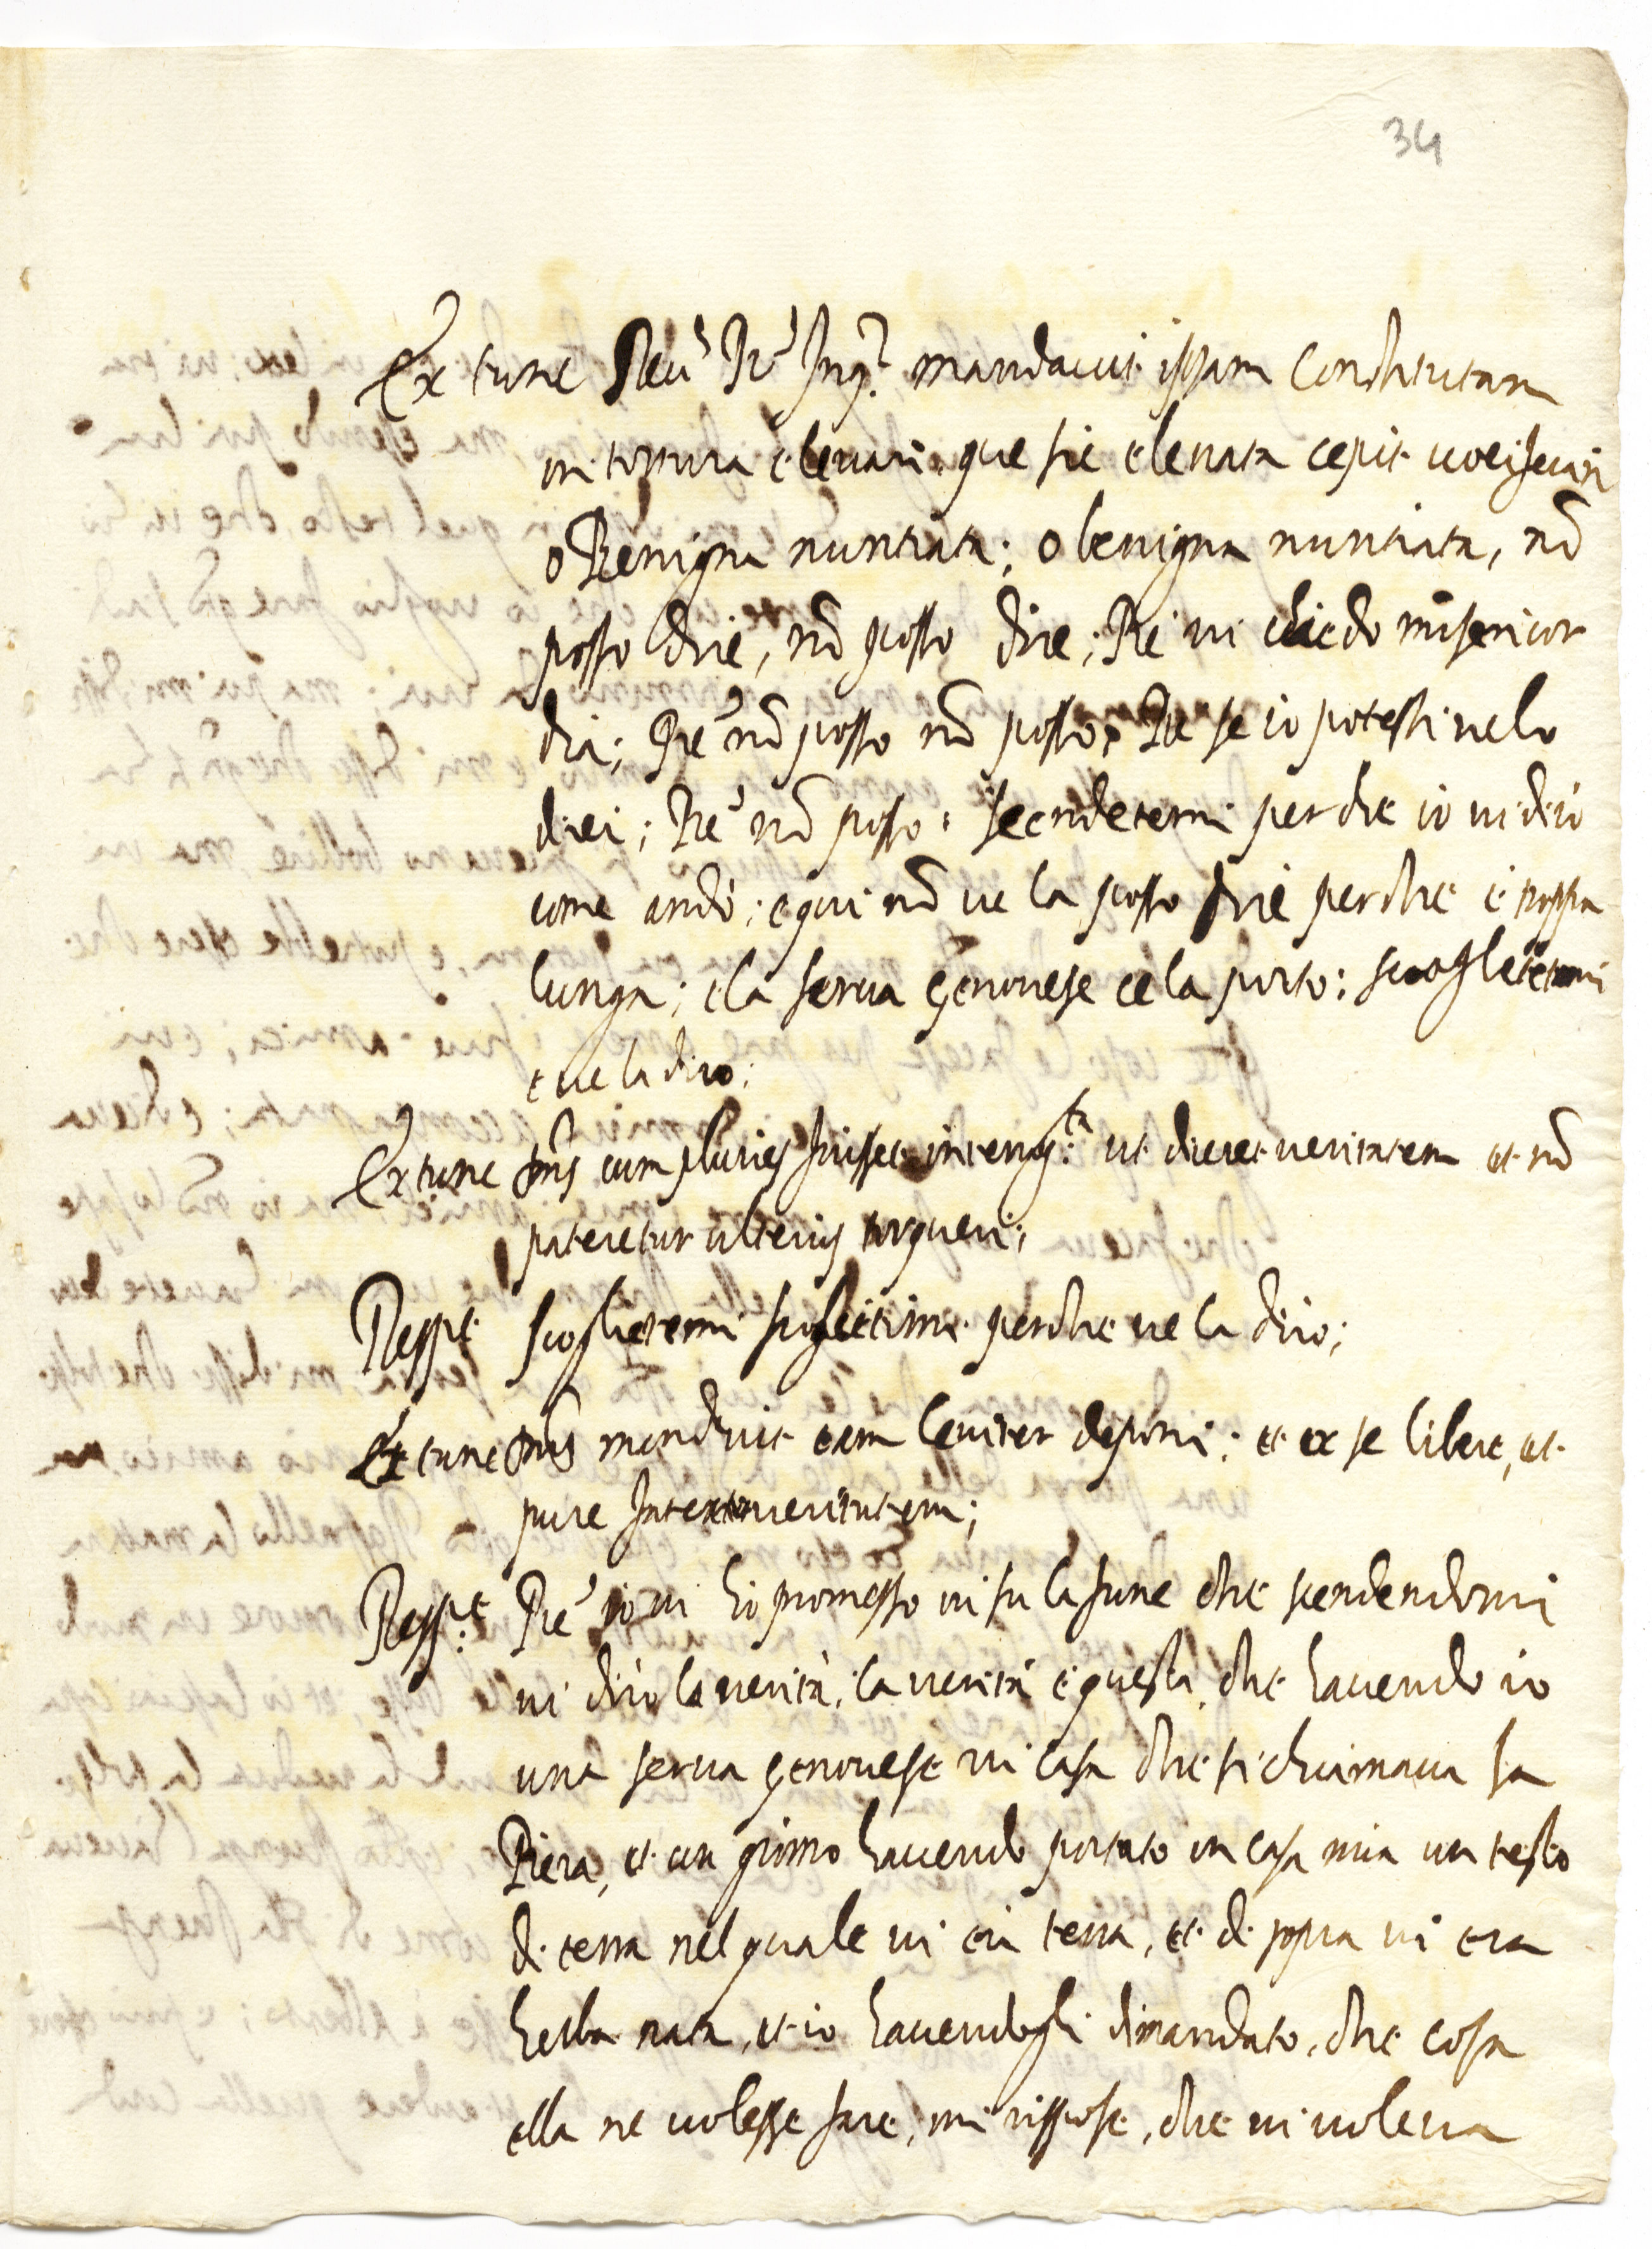 34
Ex tunc Reu.s Pr. Inq.r mandauit ipsam Constitutam
in tortura eleuari: que sic eleuata cepit uociferari
o Benigna nuntiata; o benigna nuntiata, nō
posso dire, nō posso dire; Pre ui chiedo misericor
dia; Pre nō posso nō posso, Pre se io potessi uelo
direi; Pre nō posso; scendetemi perche io ui dirò
come andò; e qui nō ue la posso dire perche è troppa
lunga; e la serua genouese ce la portò: scioglietemi
e ue la dirò:
Ex tunc cum pluries fuisset interrog.ta ut diceret ueritatem et nō
pateretur ulterius torqueri;
Resp.t scoglietemi scoglietime perche ue la dirò;
Ex tunc mandauit eam leuiter deponi: et ex se libere, et
pure ueritatem;
Resp.t Pre io ui hò promesso in su la fune che scendendomi
ui dirò la uerità, la uerità è questa, che hauendo io
una serua genouese in casa che si chiamaua la
Piera, et un giorno hauendo portato in casa mia un testo
di terra nel quale ui era terra, et di sopra ui era
herba nata, et io hauendogli dimandato, che cosa
ella ne uolesse fare, mi rispose, che ui uoleua